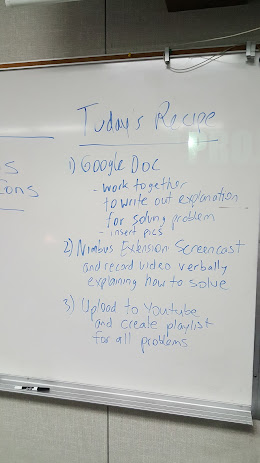 Today's Recipe
1) Google Doc
- work together
to write out explanation
for solving problem
- insert pics
2) Nimbus Extension Screencast
and record video verbally
explaining how to solve
3) Upload to Youtube
and create playlist
for all problems
s
Cons